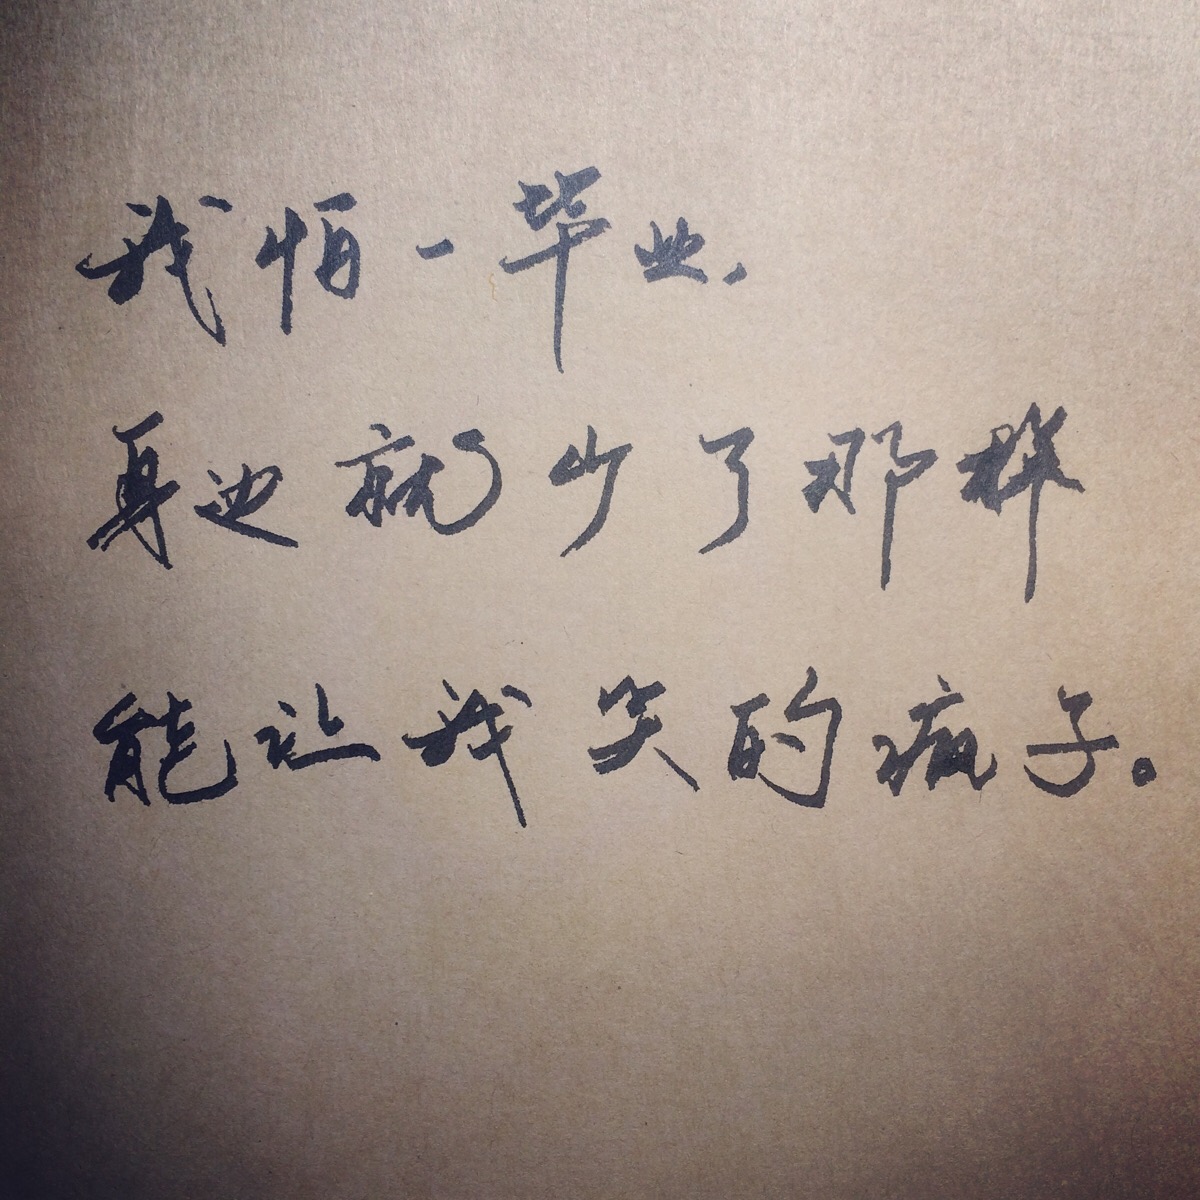 我怕一毕业，
身边就少了那群
能让我笑的疯子。